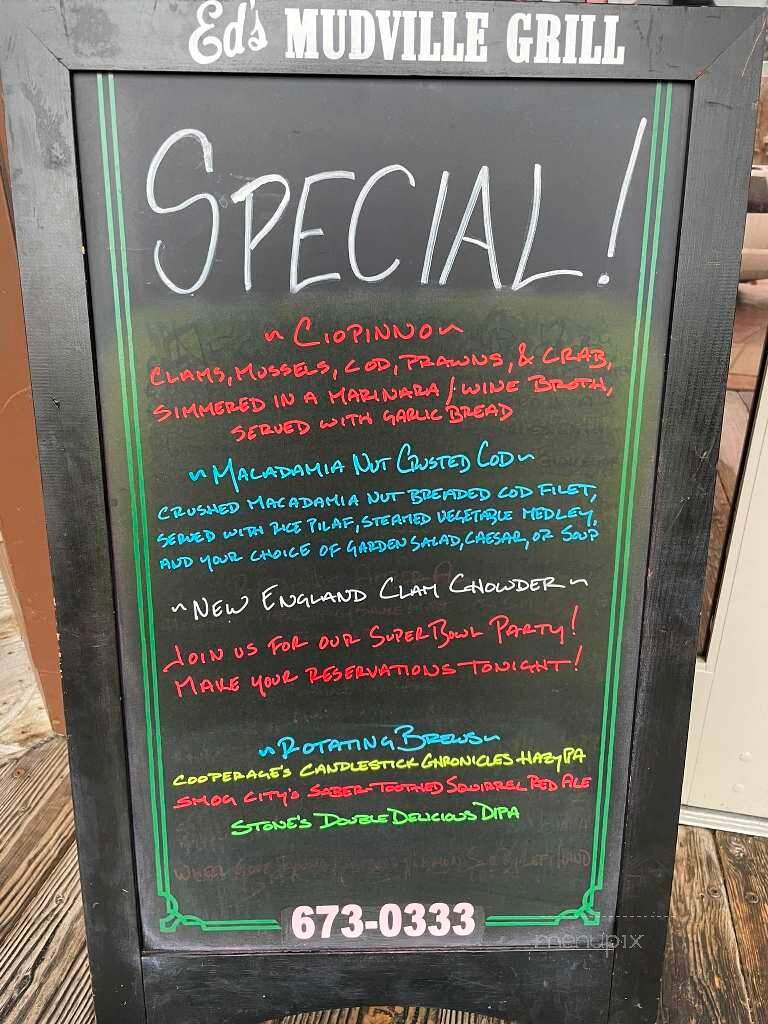 Ed's MUDVILLE GRILL
SPECIAL!
~ CIOPINNO ~
CLAMS, MUSSELS, COD, PRAWNS, & CRAB,
SIMMERED IN A MARINARA / WINE BROTH,
SERVED WITH GARLIC BREAD
~ MACADAMIA NUT CRUSTED COD ~
CRUSHED MACADAMIA NUT BREADED COD FILET,
SERVED WITH RICE PILAF, STEAMED VEGETABLE MEDLEY,
AND YOUR CHOICE OF GARDEN SALAD, CAESAR, OR SOUP
~ NEW ENGLAND CLAM CHOWDER ~
JOIN US FOR OUR SUPER BOWL PARTY!
MAKE YOUR RESERVATIONS TONIGHT!
~ ROTATING BREWS ~
COOPERAGE'S CANDLESTICK CHRONICLES HAZY IPA
SMOG CITY'S SABER-TOOTHED SQUIRREL RED ALE
STONE'S DOUBLE DELICIOUS DIPA
673-0333
menupix